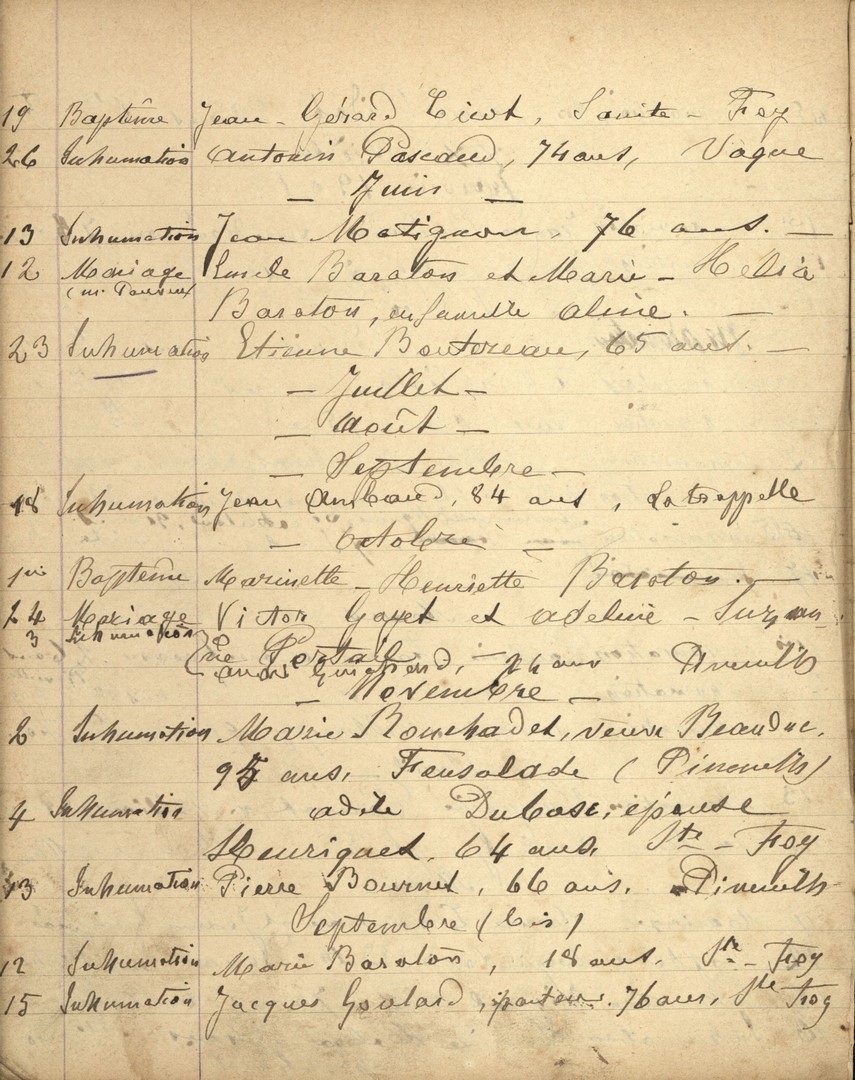 19 Baptême Jean-Gérard Sainte-Foy
26 Inhumation Antonin Pascaud, 74 ans, Vaque
— Juin —
13 Inhumation Jean Matignon, 76 ans. —
12 Mariage Emile Baraton et Marie-Hélia
Baraton, en famille Aline. —
23 Inhumation Etienne Boutoreau, 65 ans. —
— Juillet —
— Août —
— Septembre —
18 Inhumation Jean 84 ans, La trappelle
— Octobre —
1er Baptême Marinette-Henriette Baraton. —
24 Mariage Victor Gayet et Adeline-Suzan-
3 Inhumation
ne Portail
Guignard, — 24 ans Pineuilh
— Novembre —
2 Inhumation Marie Rouchadet, veuve Beauduc,
95 ans, Fensalade (Pineuilh)
4 Inhumation Adèle Dubosc, épouse
Henriquet, 64 ans, Ste-Foy
13 Inhumation Pierre Bournet, 66 ans, Pineuilh
Septembre (bis)
12 Inhumation Marie Baraton, 18 ans. Ste-Foy
15 Inhumation Jacques Goulard, pasteur. 76 ans, Ste Foy